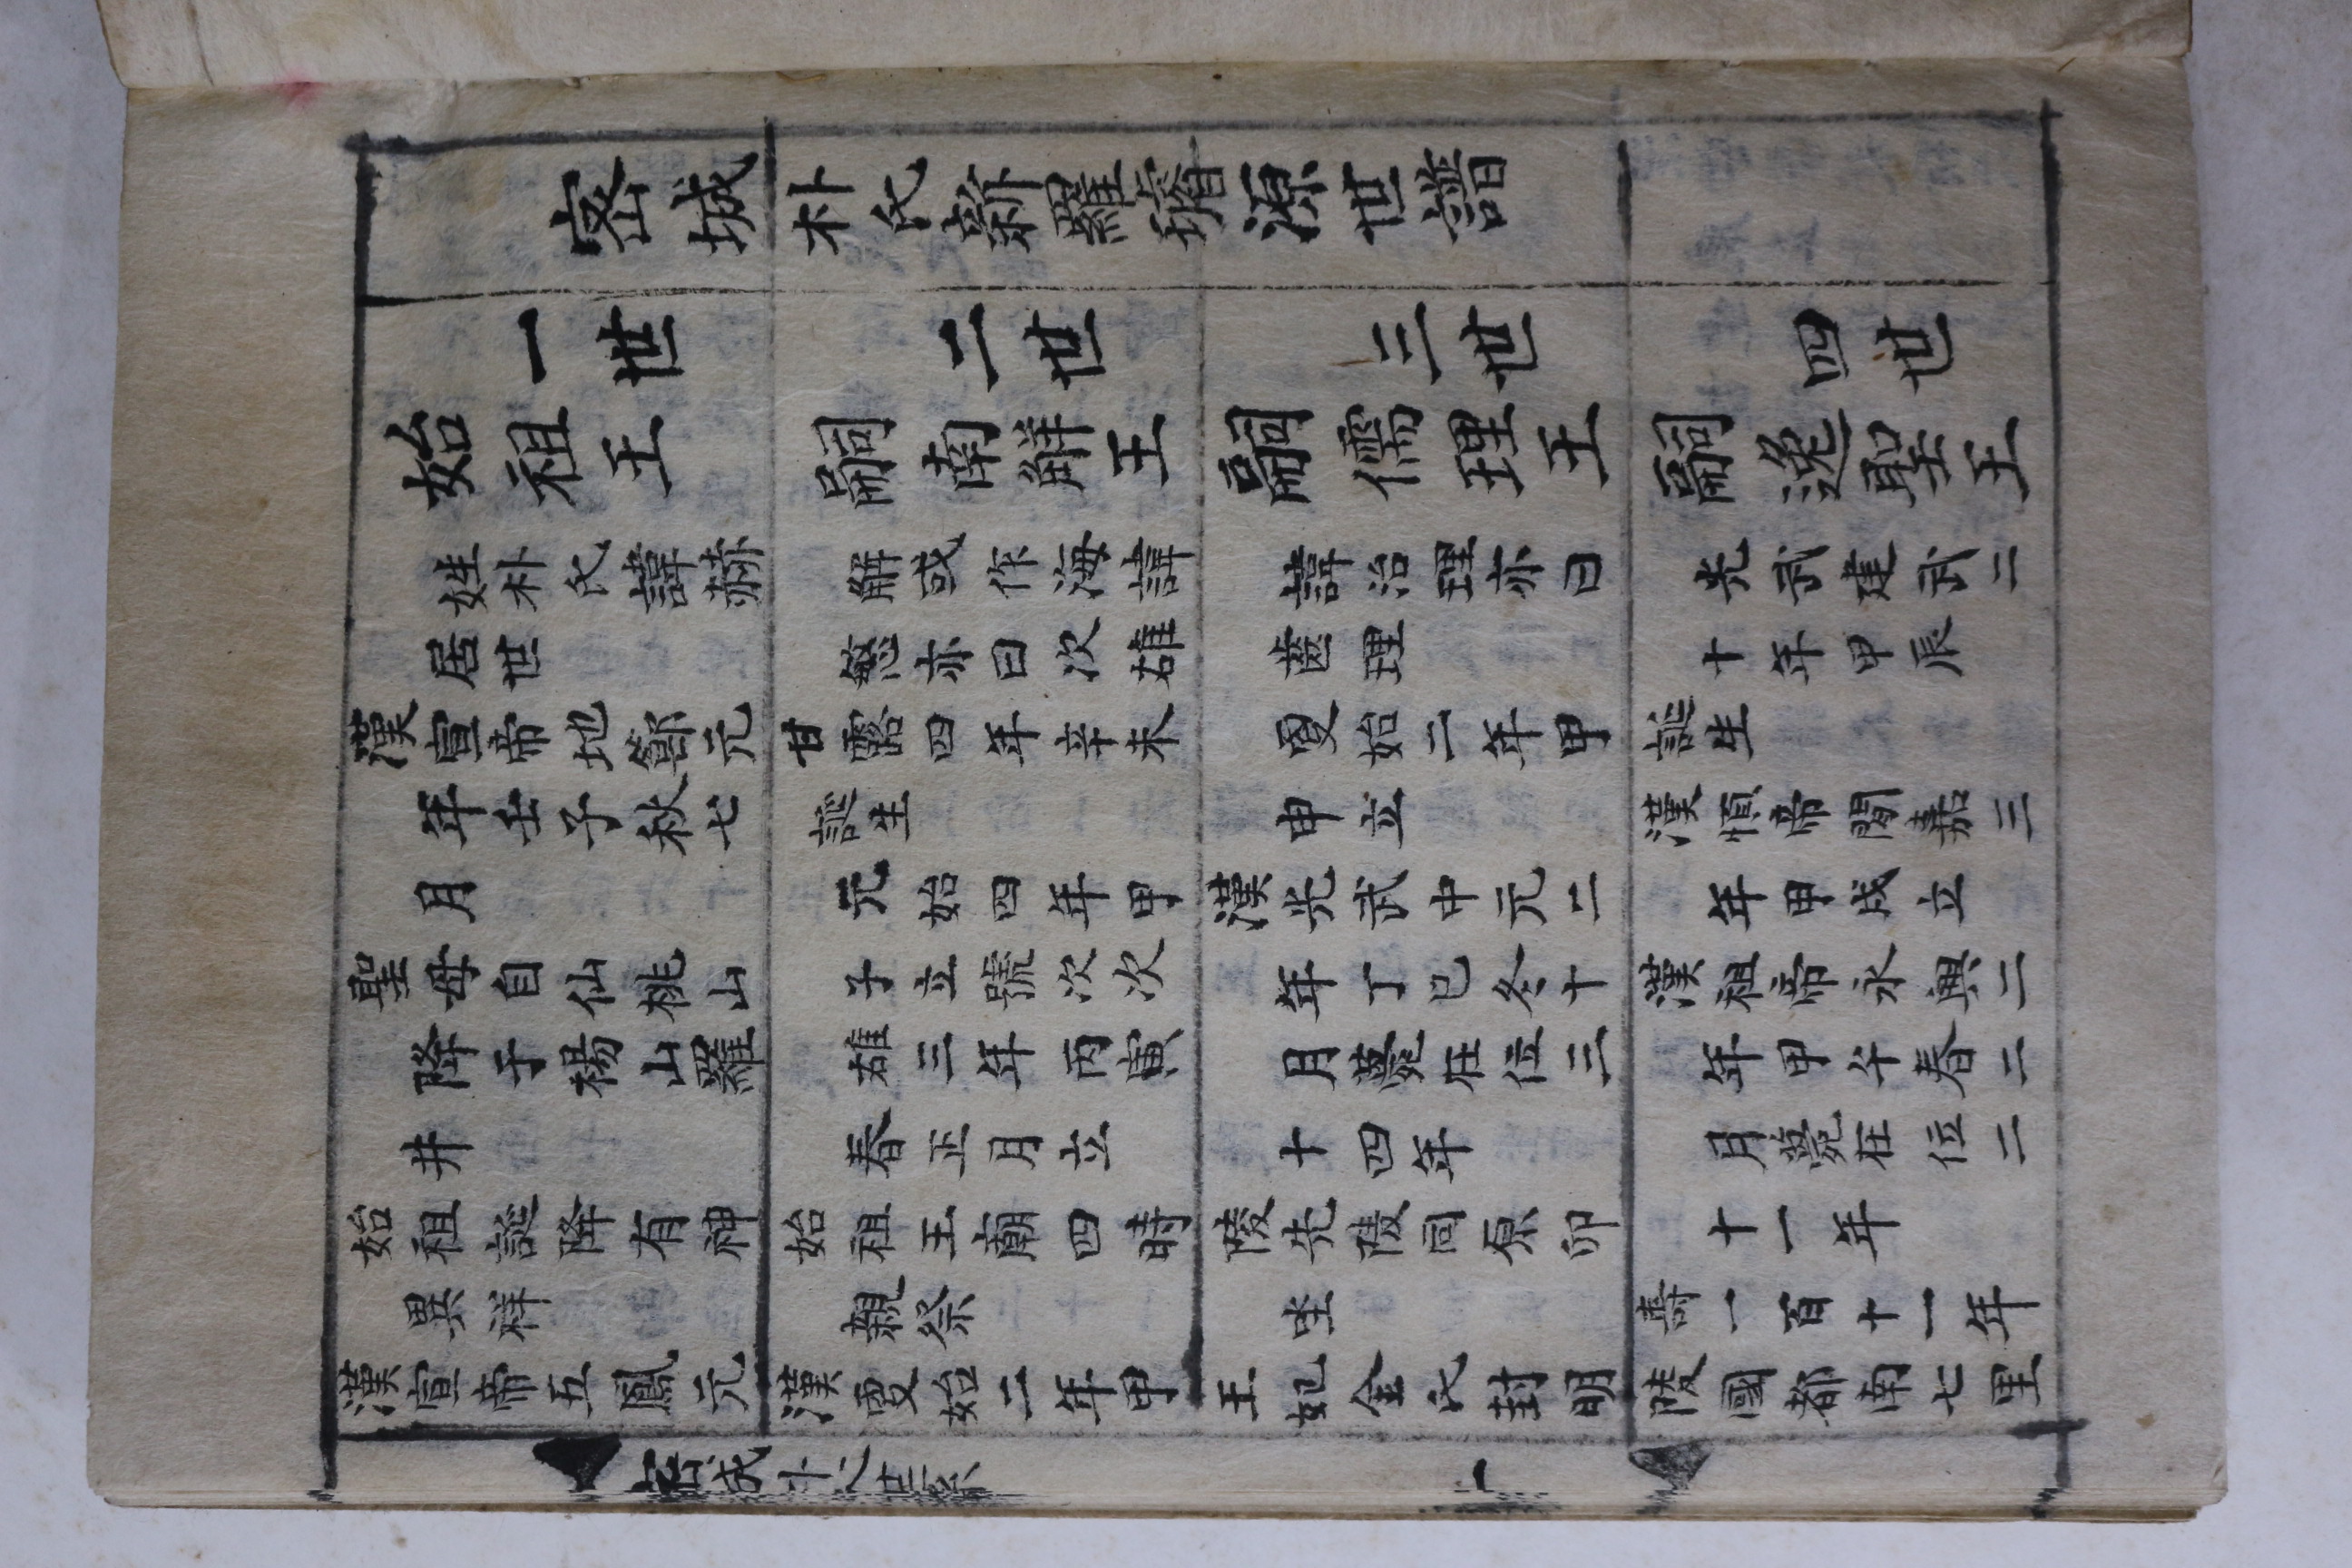 密城朴氏新羅璿源世譜
一世
始祖王
姓朴氏諱赫
居世
漢宣帝地節元
年壬子秋七
月
聖母自仙桃山
降于楊山羅
井
始祖誕降有神
異祥
漢宣帝五鳳元
二世
嗣南解王
解或作海諱
慜亦曰次雄
甘露四年辛未
誕生
元始四年甲
子立號次次
雄三年丙寅
春正月立
始祖王廟四時
親祭
漢更始二年甲
三世
嗣儒理王
諱治理亦曰
齒理
更始二年甲
申立
漢光武中元二
年丁巳冬十
月薨在位三
十四年
陵先陵同原卯
坐
王妃金氏封明
四世
嗣逸聖王
光武建武二
十年甲辰
誕生
漢順帝陽嘉三
年甲戌立
漢祖帝永興二
年甲午春二
月薨在位二
十一年
壽一百十一年
陵國都南七里
密城朴氏世系
一